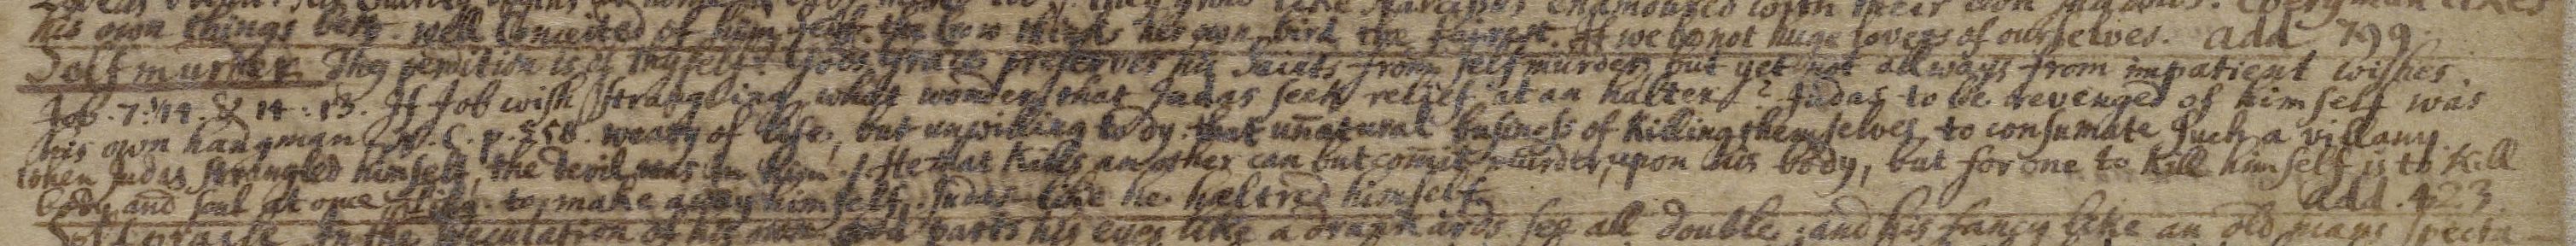 his own things best. well Conceited of himself. the Crow thinks her own bird the fairest. If we be not huge lovers of ourselves. add 799.
Self murder. Thy perdition is of thyself. Gods Grace preserves his Saints from self murder, but yet not allways from impatient wishes.
Job. 7. 14. & 14. 13. If Job wish strangling, what wonder that Judas seek relief at an halter? Judas to be revenged of himself was
his own hangman. p. 558. weary of life, but unwilling to dy. that unnatural business of killing themselves, to consumate such a villany.
when Judas strangled himself, the Devil was in him. He that kills an other can but comit murder upon his body, but for one to kill himself is to kill
body and soul at once. to make away himself. Judas like he haltred himself. add. 423.
praise. In the speculation of his own parts his eyes like a drunkards see all double, and his fancy like an old mans